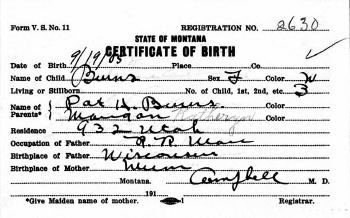 Form V. S. No. 11 REGISTRATION NO. 2630
STATE OF MONTANA
CERTIFICATE OF BIRTH
Date of Birth 9/19/05 Place Co.
Name of Child Burns Sex F Color W
Living or Stillborn No. of Child, 1st, 2nd, etc. 3
Name of Parents* Pat H. Burns Color
Mangan Katheryn Color
Residence 932 Utah
Occupation of Father R. R. Man
Birthplace of Father Wisconsin
Birthplace of Mother Minn
Montana. Campbell M. D.
191
*Give Maiden name of mother. Registrar.